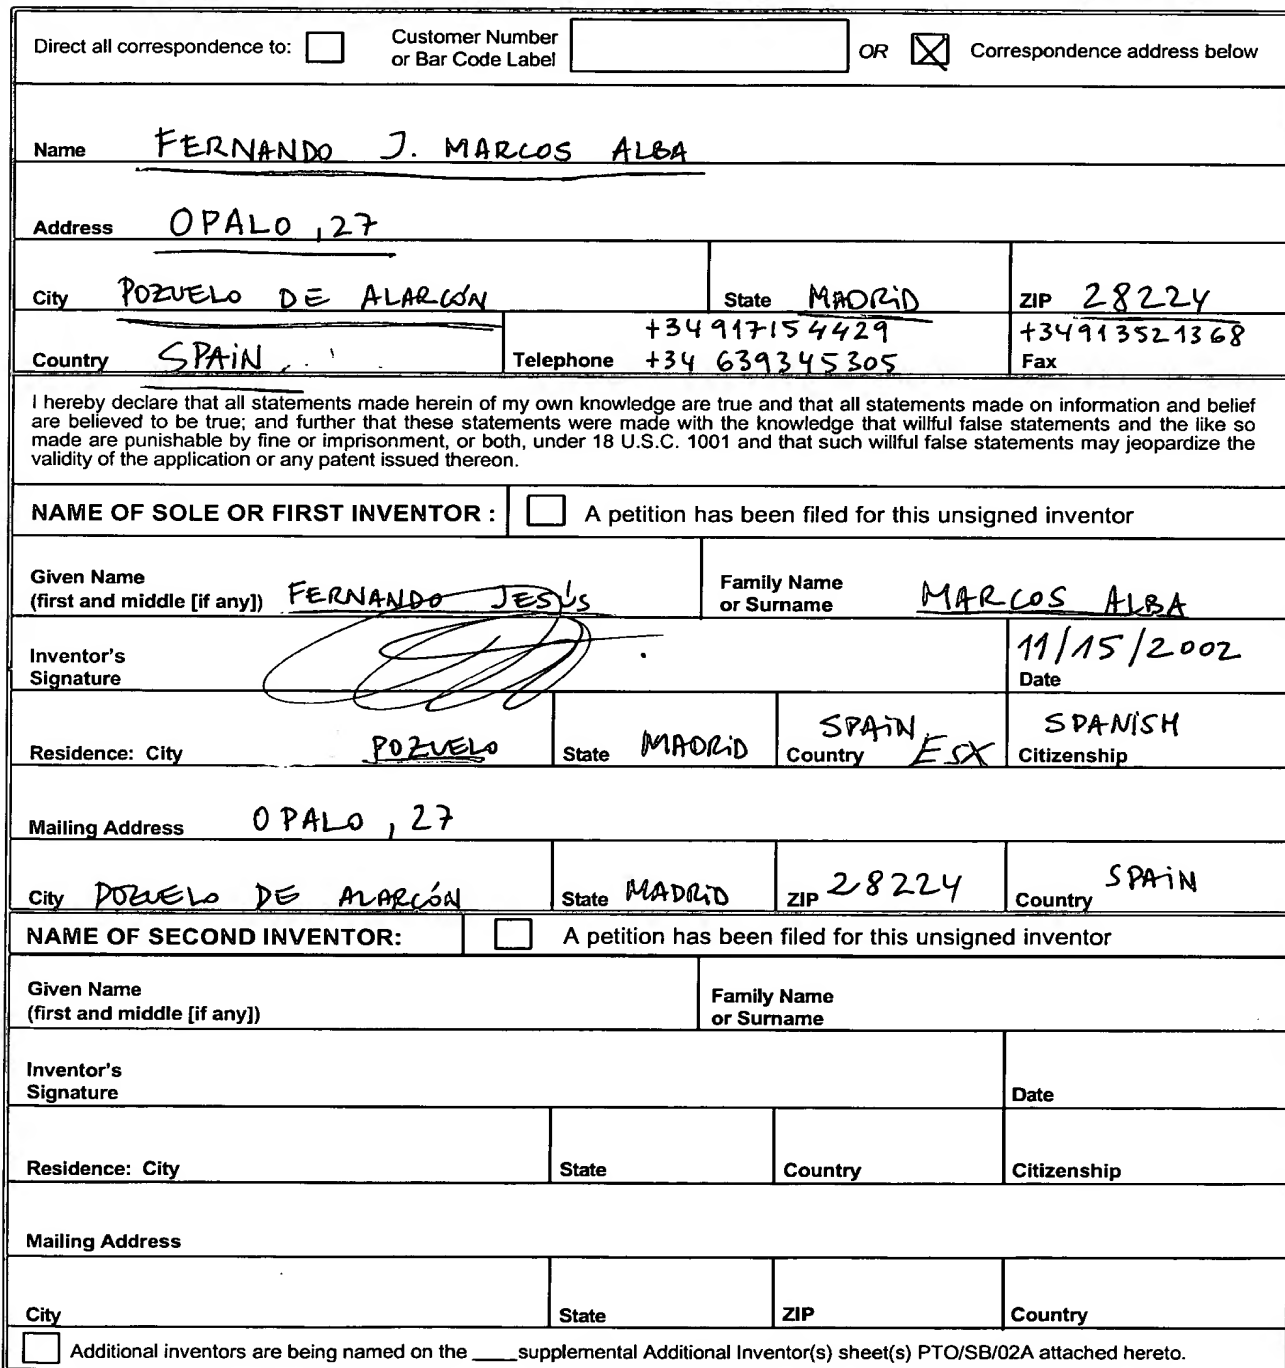 Direct all correspondence to: Customer Number or Bar Code Label OR Correspondence address below
Name FERNANDO J. MARCOS ALBA
Address OPALO, 27
City POZUELO DE ALARCÓN State MADRiD ZIP 28224
Country SPAiN Telephone +34 917154429 +34 639345305 +34913521368 Fax
I hereby declare that all statements made herein of my own knowledge are true and that all statements made on information and belief
are believed to be true; and further that these statements were made with the knowledge that willful false statements and the like so
made are punishable by fine or imprisonment, or both, under 18 U.S.C. 1001 and that such willful false statements may jeopardize the
validity of the application or any patent issued thereon.
NAME OF SOLE OR FIRST INVENTOR : A petition has been filed for this unsigned inventor
Given Name (first and middle [if any]) FERNANDO JESÚS Family Name or Surname MARCOS ALBA
Inventor's Signature 11/15/2002 Date
Residence: City POZUELO State MADRiD SPAiN Country ESX SPANiSH Citizenship
Mailing Address OPALO, 27
City POZUELO DE ALARCÓN State MADRiD ZIP 28224 Country SPAiN
NAME OF SECOND INVENTOR: A petition has been filed for this unsigned inventor
Given Name (first and middle [if any]) Family Name or Surname
Inventor's Signature Date
Residence: City State Country Citizenship
Mailing Address
City State ZIP Country
Additional inventors are being named on the ____supplemental Additional Inventor(s) sheet(s) PTO/SB/02A attached hereto.